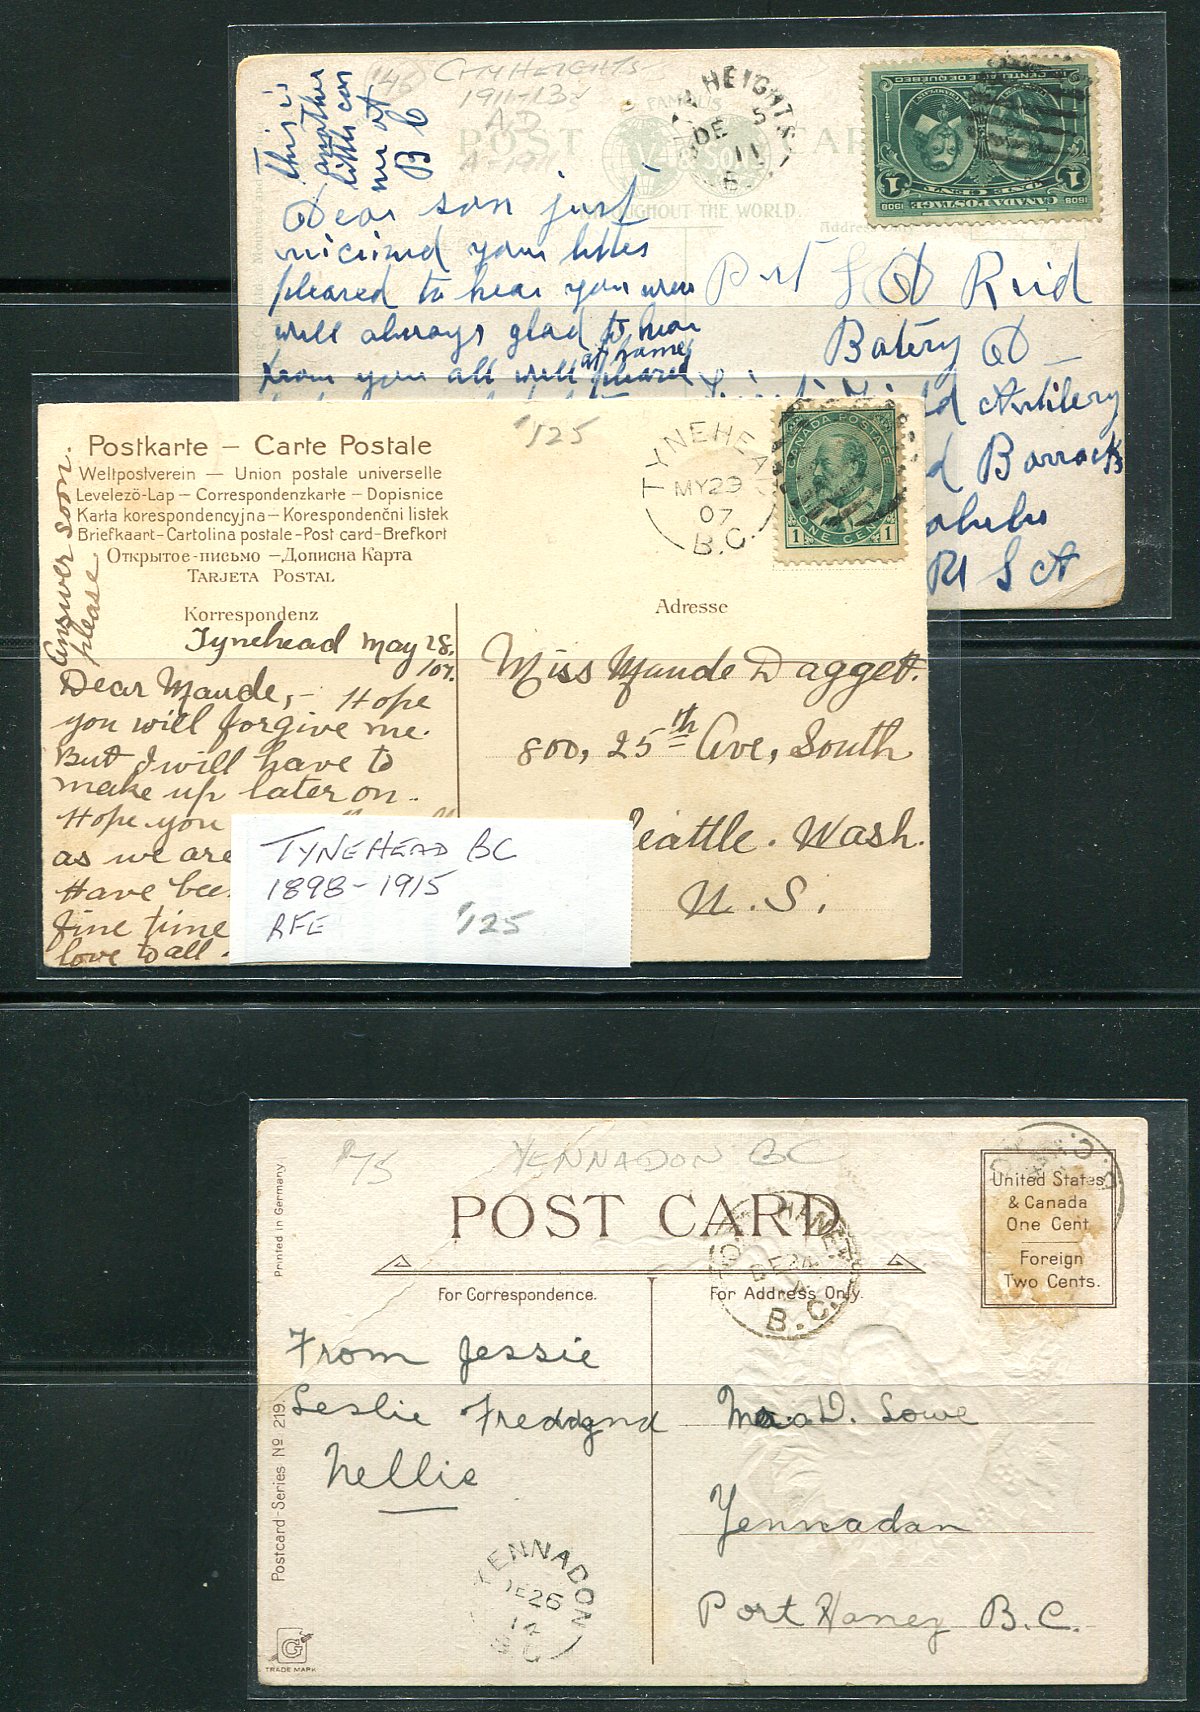 $45
CITY HEIGHTS
1911-13
A.D
A-1911
FAMOUS
POST CARD
THROUGHOUT THE WORLD.
HEIGHTS
DE 5
11
CANADA POSTAGE
ONE CENT
1908
1908
1
1
this is
another
little can
me at
B C
Dear son just
recieved your letter
pleared to hear you were
will always glad to hear
from you all well pleared
at home
Address
Reid
Batery D
Artilery
Barracks
U S A
$125
Postkarte – Carte Postale
Weltpostverein – Union postale universelle
Levelező-Lap – Correspondenzkarte – Dopisnice
Karta korespondencyjna – Korespondenční listek
Briefkaart – Cartolina postale – Post card – Brefkort
Открытое письмо – Дописна Карта
TARJETA POSTAL
TYNEHEAD
MY 29
07
B.C.
CANADA POSTAGE
1 ONE CENT 1
Answer soon.
please
Korrespondenz
Adresse
Tynehead May 28,
/07.
Dear Maude, – Hope
you will forgive me.
But I will have to
make up later on..
Hope you
as we are
Have bee
fine time
love to all.
Miss Maude Dagget.
800, 25th Ave, South
eattle. Wash.
U.S.
TYNEHEAD BC
1898-1915
RFE
$125
$75
YENNADON BC
POST CARD
For Correspondence.
For Address Only.
United States
& Canada
One Cent
Foreign
Two Cents.
HANEY
B.C.
Printed in Germany
Postcard-Series No 219.
G
TRADE MARK
From Jessie
Leslie Fred and
Nellie
D. Lowe
Yennadan
Port Haney B.C.
YENNADON
DE 26
14
B C